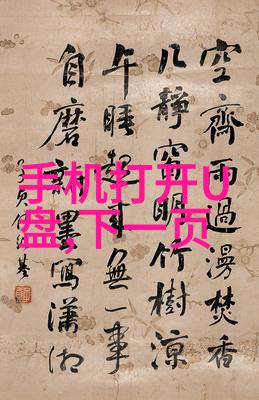 手机打开U
盘,下一页
空齋雨過漫焚香
几靜窗明竹樹涼
午睡起來無一事
自磨墨寫瀟湘